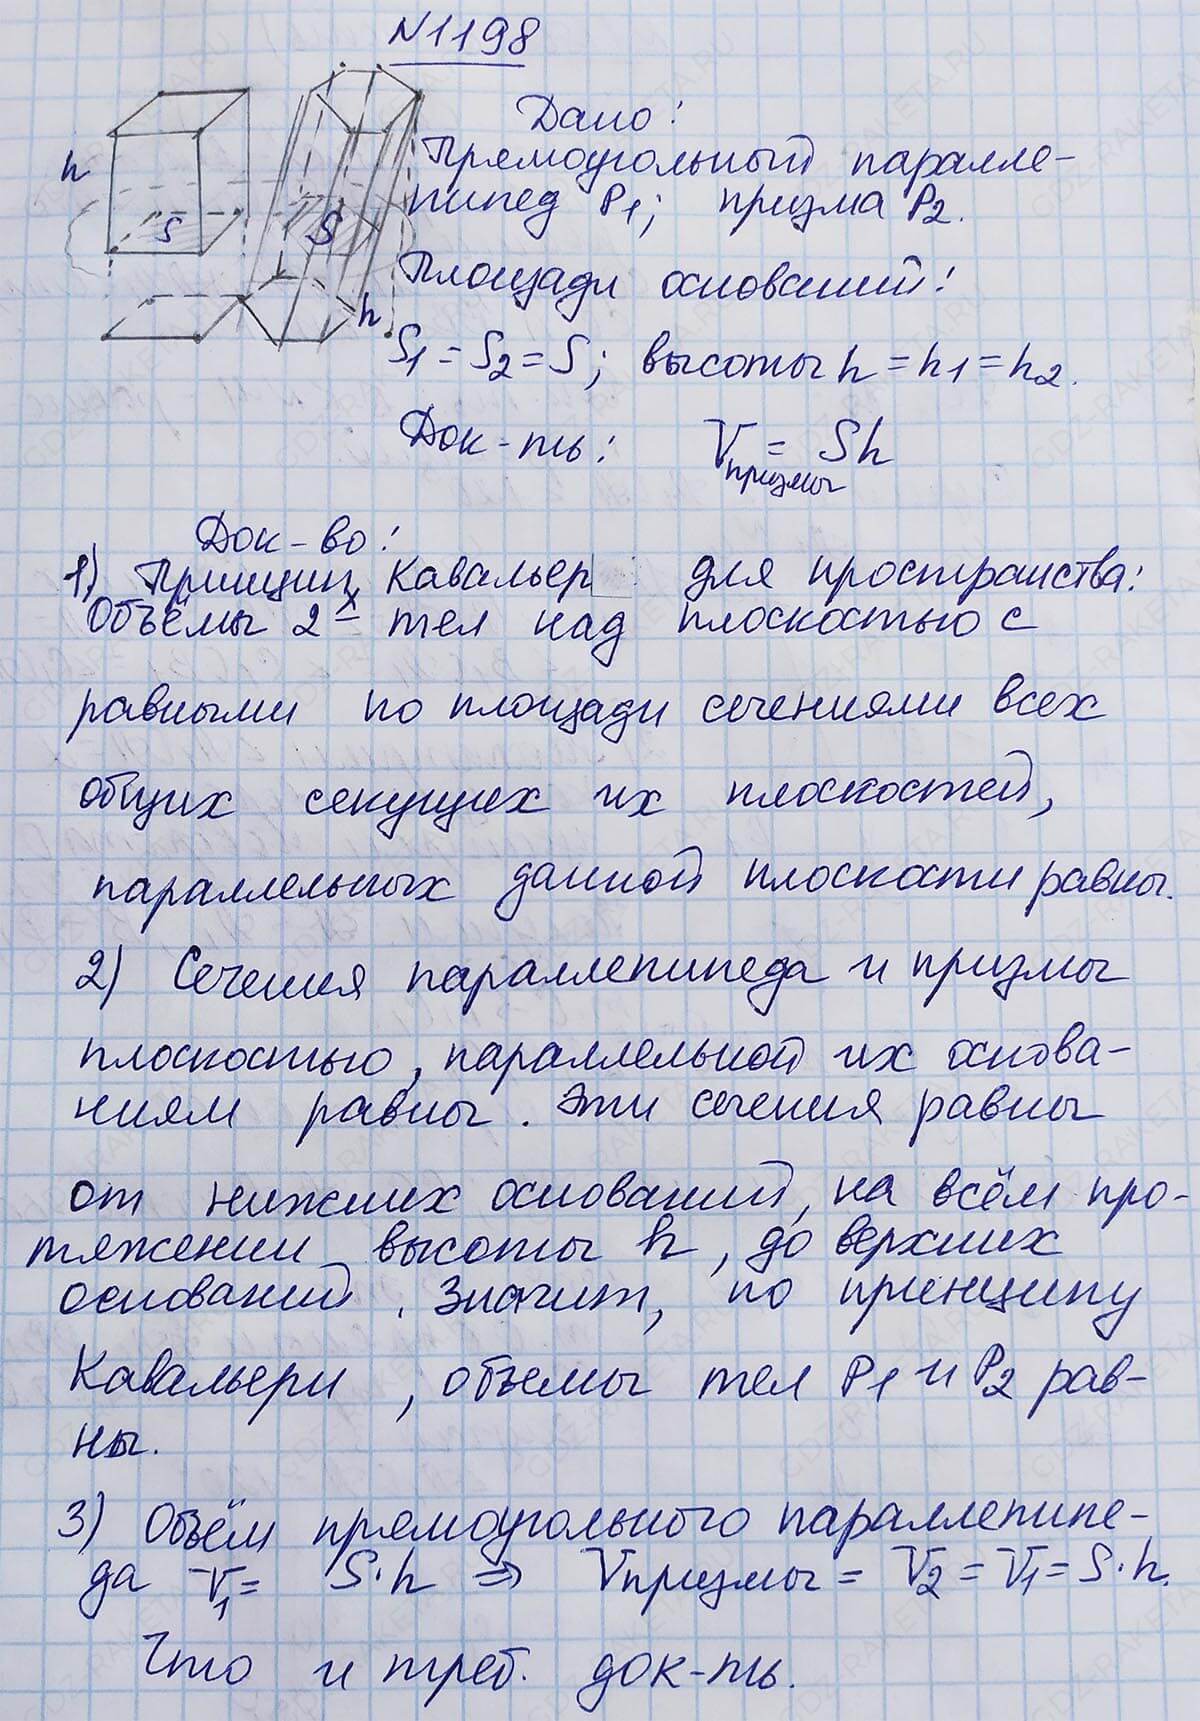 N1198
Дано:
Прямоугольный паралле-
пипед P1; призма P2.
h
S
S
Площади оснований:
h
S1 = S2 = S; высоты h = h1 = h2.
Док-ть: Vпризмы = Sh
Док-во:
1) Принцип Кавальер для пространства:
Объёмы 2х тел над плоскостью с
равными по площади сечениями всех
общих секущих их плоскостей,
параллельных данной плоскости равны.
2) Сечения параллепипеда и призмы
плоскостью, параллельной их основа-
ниям равны. Эти сечения равны
от нижних оснований, на всём про-
тяжении высоты h, до верхних
оснований. Значит, по принципу
Кавальери, объемы тел P1 и P2 рав-
ны.
3) Объём прямоугольного параллепипе-
да V1 = S·h ⇒ Vпризмы = V2 = V1 = S·h.
Что и треб. док-ть.